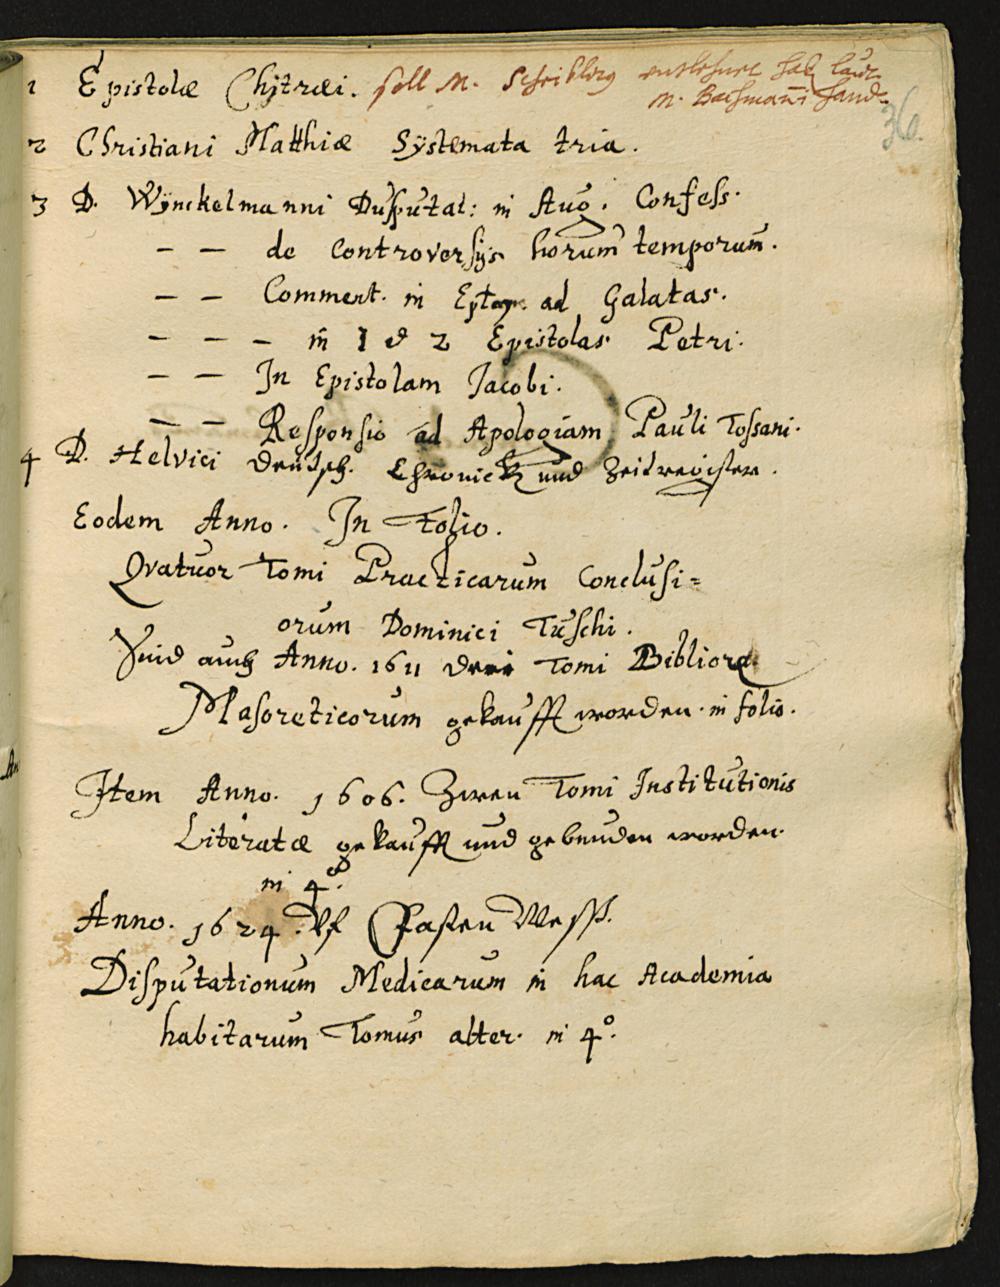 1 Epistolæ Chÿtræi. soll M. Scheiblerg entlehnet hab laut
M. Bachmanni hand.
36.
2 Christiani Matthiæ Sÿstemata tria.
3 D. Wÿnckelmanni Dusputat: in Aug. Confess.
— — de controversijs horum temporum.
— — Comment. in Ep ad Galatas.
— — — in 1 et 2 Epistolas Petri.
— — In Epistolam Jacobi.
— — Responsio ad Apologiam Pauli Tossani.
4 D. Helvici deutsch. Chronick und Zeitregister.
Eodem Anno. In Folio.
Qvatuor Tomi Practicarum Conclusi=
orum Dominici Tuschi.
Seind auch Anno. 1611 drei Tomi Bibliorum
Masoreticorum gekaufft worden. in folio.
Item Anno. 1606. Zween Tomi Institutionis
Literatæ gekaufft und gebunden worden.
in 4º.
Anno. 1624. Vf Fasten Mess.
Disputationum Medicarum in hac Academia
habitarum Tomus alter. in 4º.